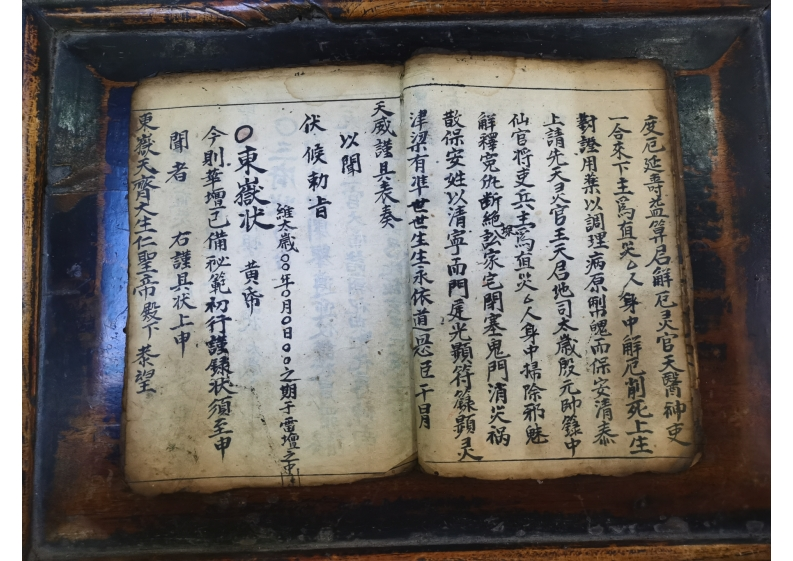 度厄延壽益算君解厄灵官天醫神吏
一合來下主爲值災厶人身中解厄削死上生
對證用藥以調理病原剪魄而保安清泰
上請先天灵官王天君地司太歲殷元帥籙中
仙官将吏兵主爲值災厶人身中掃除邪魅
解釋冤仇断絕訟家宅閉塞鬼門消災禍
散保安姓以清寧而門庭光顯符籙顯灵
津梁有准世世生生永依道恩臣干冒
天威謹具表奏
以聞
伏候勅旨
維太歲〇〇年〇月〇日〇〇之期于雷壇之中
〇東嶽状 黄帋
今則華壇已備祕範初行護録状須至申
聞者 右謹具状上申
東嶽天齊大生仁聖帝殿下 恭望